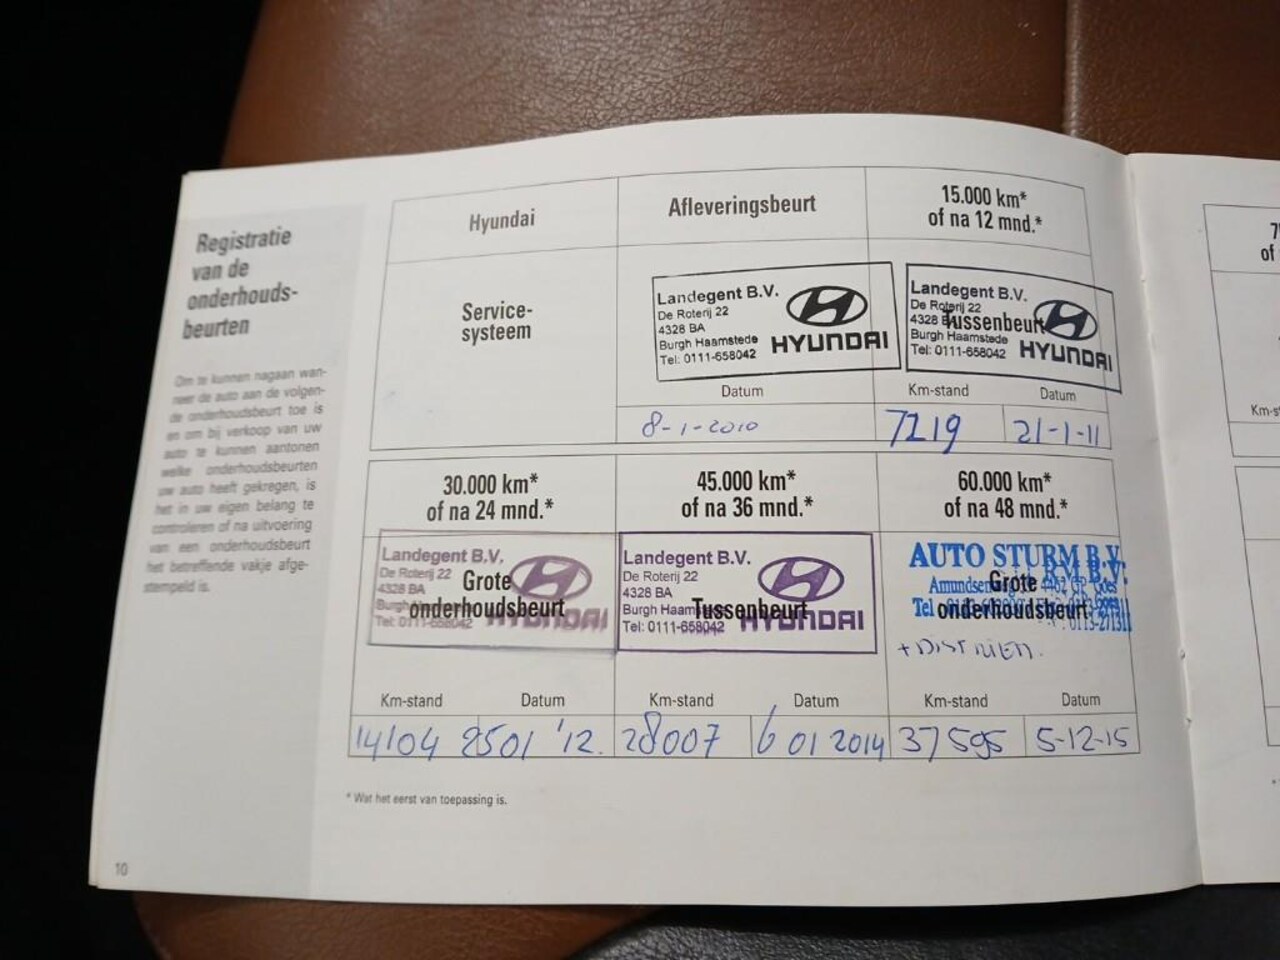 Registratie
van de
onderhouds-
beurten
Om te kunnen nagaan wan-
neer de auto aan de volgen-
de onderhoudsbeurt toe is
en om bij verkoop van uw
auto te kunnen aantonen
welke onderhoudsbeurten
uw auto heeft gekregen, is
het in uw eigen belang te
controleren of na uitvoering
van een onderhoudsbeurt
het betreffende vakje afge-
stempeld is.
Hyundai
Afleveringsbeurt
15.000 km*
of na 12 mnd.*
Service-
systeem
Landegent B.V.
De Roterij 22
4328 BA
Burgh Haamstede
Tel: 0111-658042
HYUNDAI
Datum
8-1-2010
Landegent B.V.
De Roterij 22
4328 BA
Burgh Haamstede
Tel: 0111-658042
HYUNDAI
Tussenbeurt
Km-stand Datum
7219 21-1-11
30.000 km*
of na 24 mnd.*
45.000 km*
of na 36 mnd.*
60.000 km*
of na 48 mnd.*
Landegent B.V.
De Roterij 22
4328 BA
Burgh
Tel: 0111-658042
HYUNDAI
Grote
onderhoudsbeurt
Km-stand Datum
14104 2501 '12.
Landegent B.V.
De Roterij 22
4328 BA
Burgh Haamstede
Tel: 0111-658042
HYUNDAI
Tussenbeurt
Km-stand Datum
28007 6 01 2014
AUTO STURM B.V.
Amundsenweg 4462 GP Goes
Tel
0113-271311
Grote
onderhoudsbeurt
+ DISTRIEM.
Km-stand Datum
37595 5-12-15
* Wat het eerst van toepassing is.
10
of